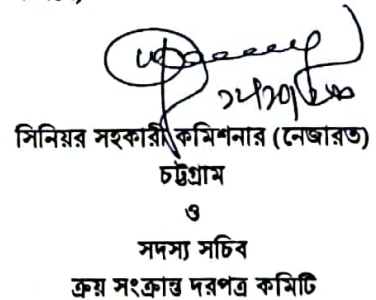 সিনিয়র সহকারী কমিশনার (নেজারত)
চট্টগ্রাম
ও
সদস্য সচিব
ক্রয় সংক্রান্ত দরপত্র কমিটি